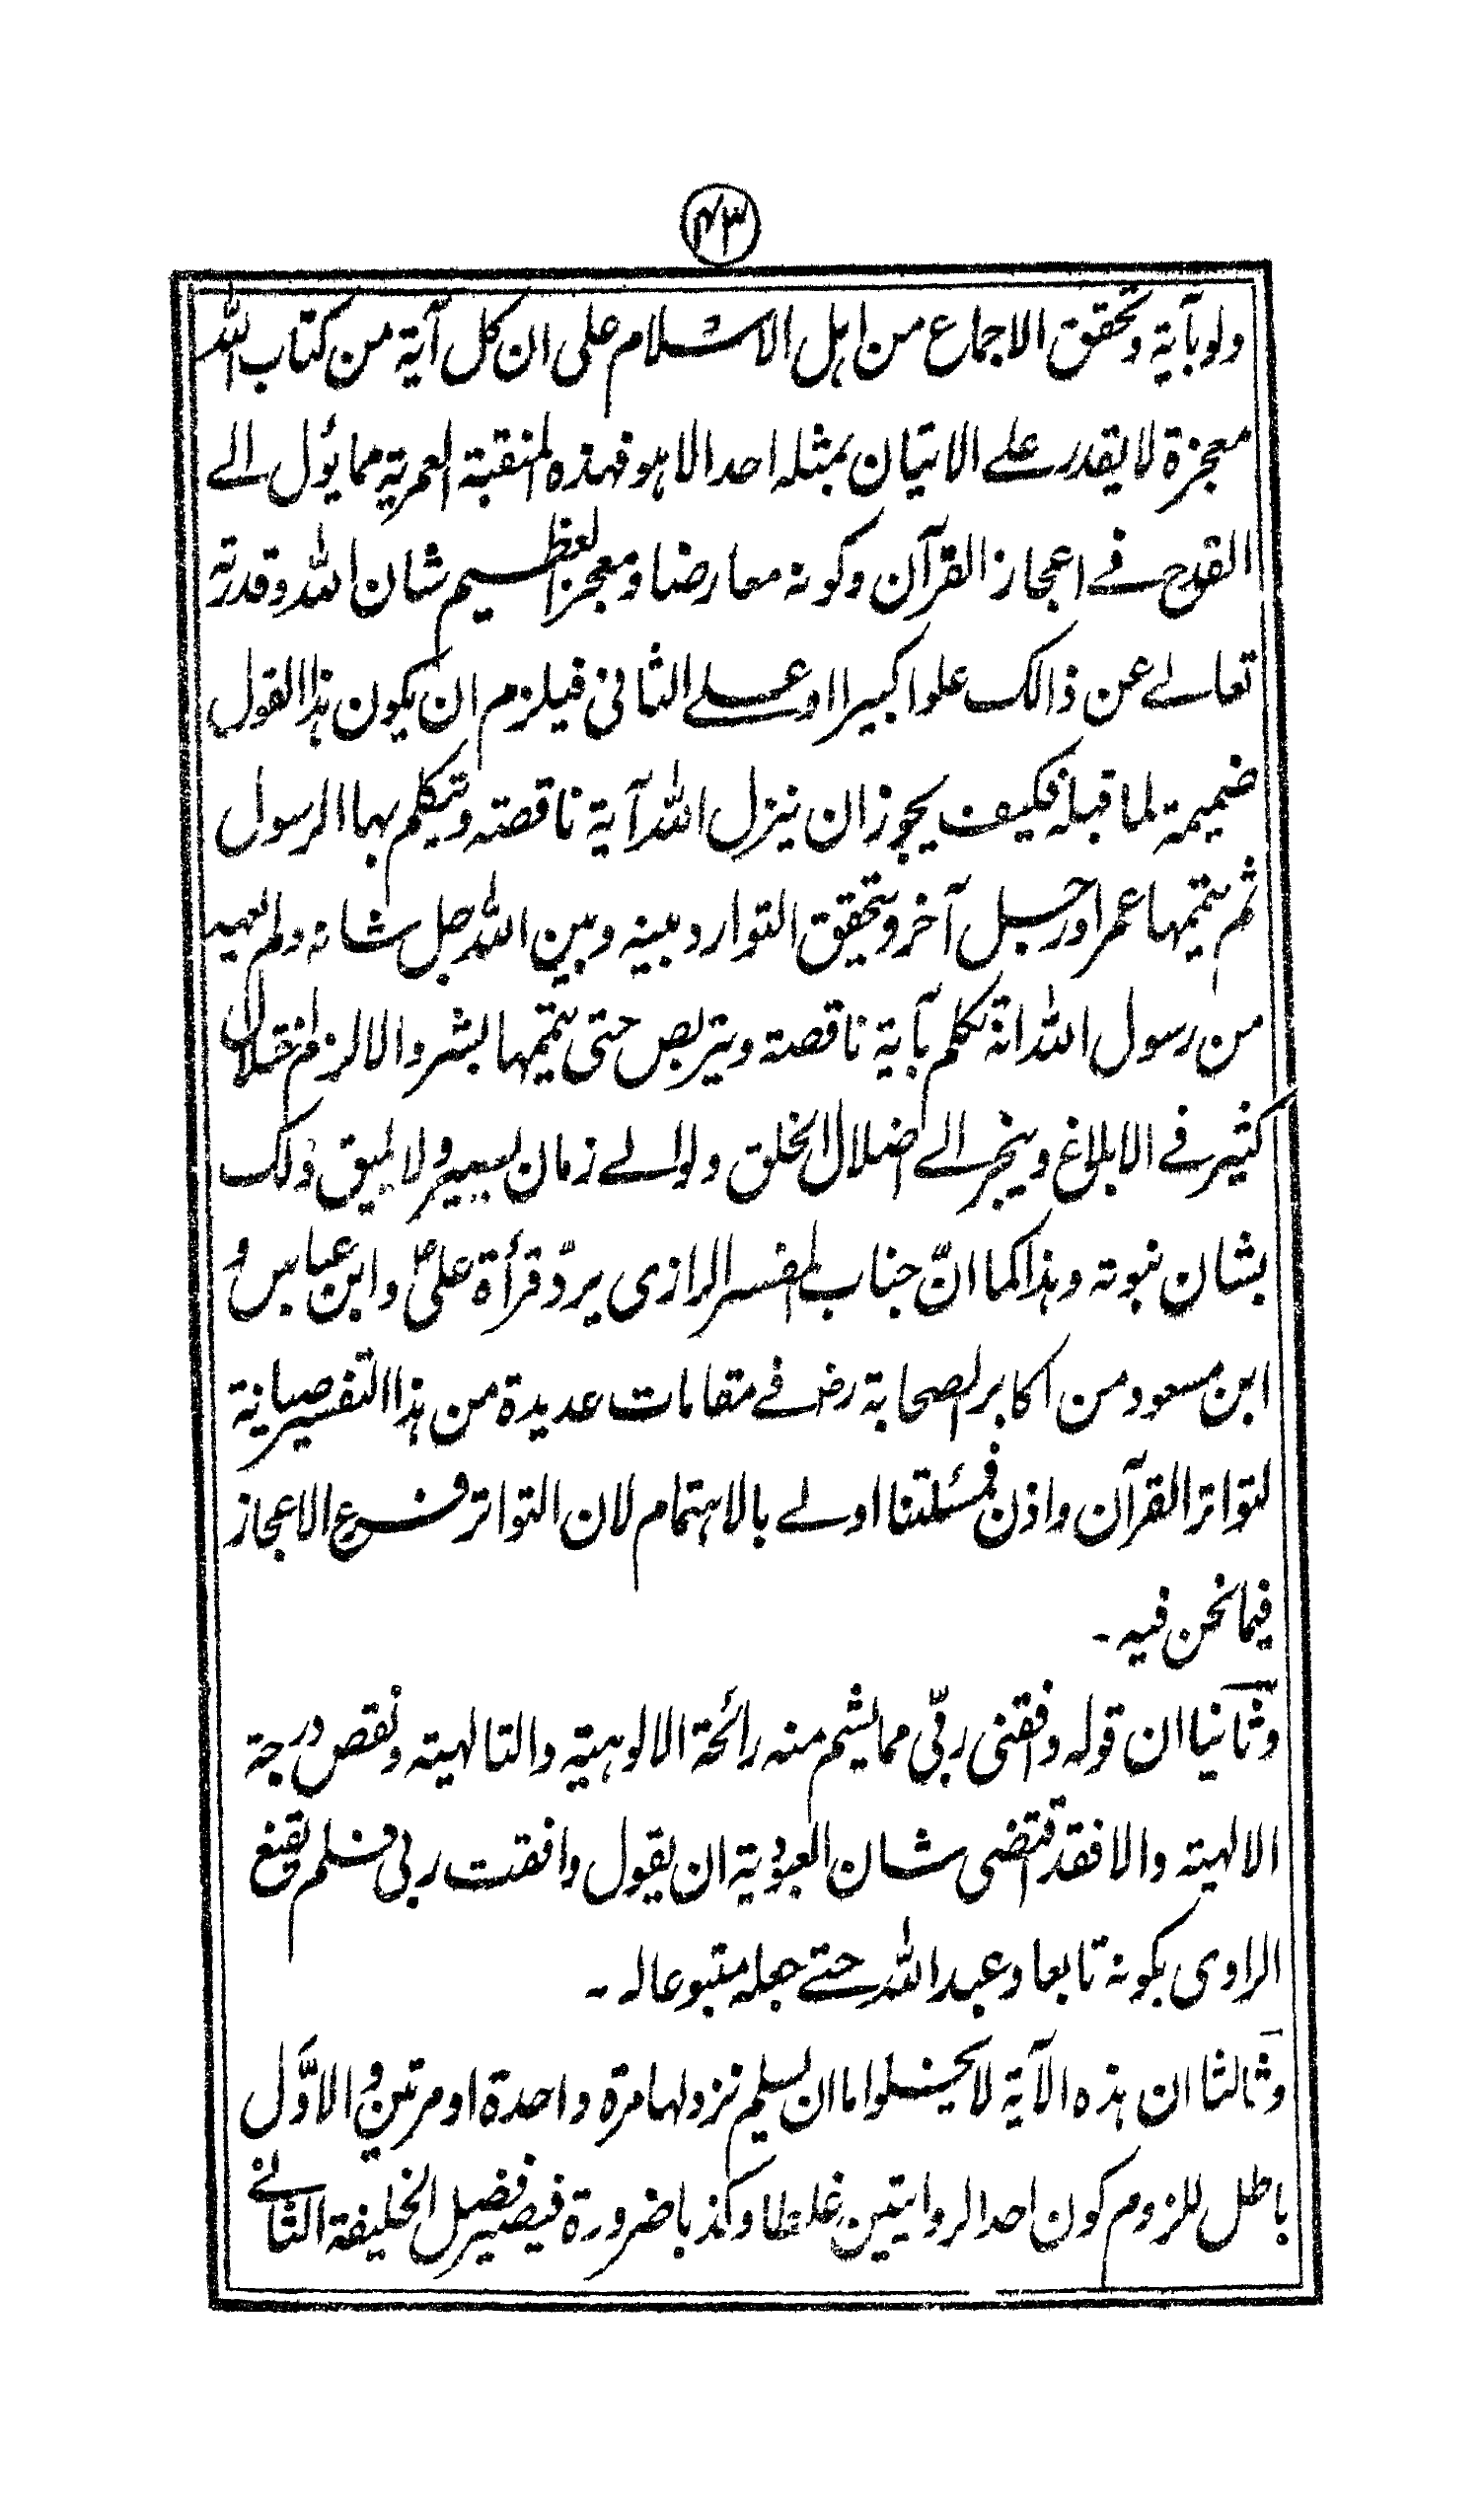 ۴۳
ولو بآیة وتحقق الاجماع من اہل الاسلام علی ان کل آیة من کتاب اللہ
معجزة لا یقدر علے الاتیان بمثلہ احد الا ہو فہذہ المنقبة العمریة مما یؤل الے
القدح فے اعجاز القرآن وکونہ معارضا ومعجزا لعظیم شان اللہ وقدرتہ
تعالے عن ذالک علوا کبیرا او علے الثانی فیلزم ان یکون ہذا القول
ضمیمة لما قبلہ فکیف یجوز ان ینزل اللہ آیة ناقصتہ ویتکلم بہا الرسول
ثم یتمہا عمر او رجل آخر ویتحقق التوارد بینہ وبین اللہ جل شانہ ولم یعہد
من رسول اللہ انہ تکلم بآیة ناقصتہ ویتربص حتی یتمہا بشر والا لزم اختلال
کثیر فے الابلاغ وینجر الے اضلال الخلق ولو الے زمان یسیر ولا یلیق ذلک
بشان نبوتہ وہذا کما انّ جناب المفسر الرازی یردّ قرأة علیؑ وابن عباس و
ابن مسعود من اکابر الصحابة رض فے مقامات عدیدة من ہذا التفسیر صیانة
لتواتر القرآن واذن فمسئلتنا اولے بالاہتمام لان التواتر فرع الاعجاز
فیما نحن فیہ ۔
وثانیا ان قولہ وافقنی ربّی مما یشم منہ رائحة الالوہیتہ والتالہیتہ ونقص درجة
الالہیتہ والا فقد اقتضی شان العبودیة ان یقول وافقت ربی فلم یقنع
الراوی بکونہ تابعا وعبد اللہ حتے جعلہ متبوعا لہ ۔
وثالثا ان ہذہ الآیة لا یخلوا ما ان یسلم نزولہا مرة واحدة او مرتین والاوّل
باطل للزوم کون احد الروایتین غلطا وکذبا ضرورة فیصیر فضیل الخلیفة الثانے